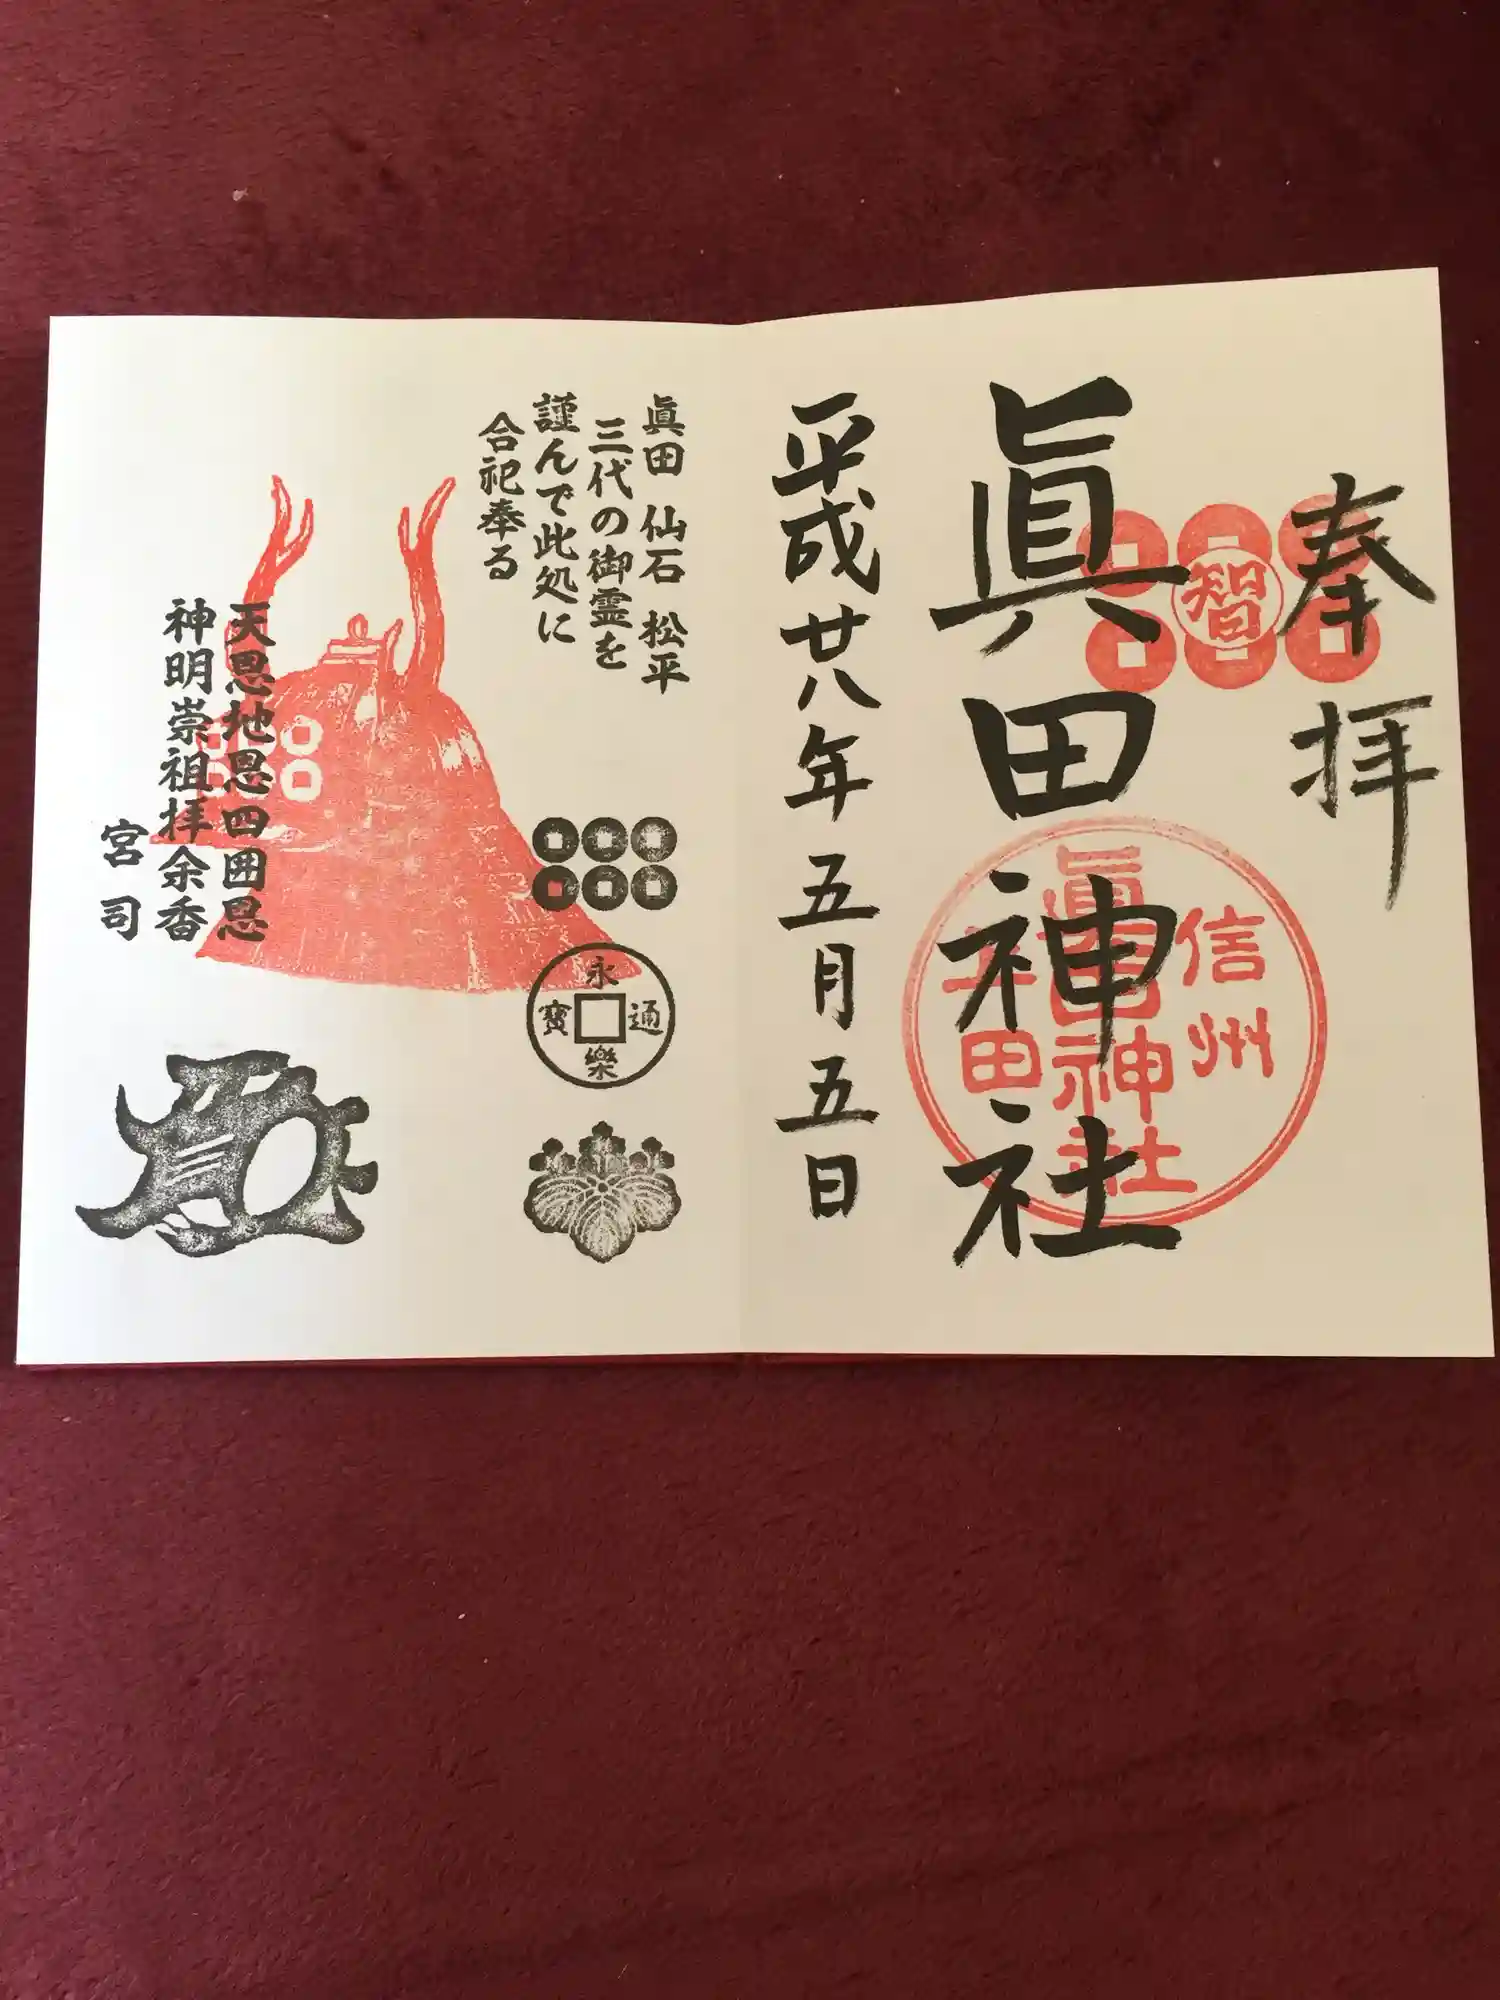 奉拝
智
眞田神社
信州
眞田神社
上田
平成廿八年五月五日
眞田 仙石 松平
三代の御霊を
謹んで此処に
合祀奉る
永樂通寶
天恩地恩四囲恩
神明崇祖拝余香
宮司